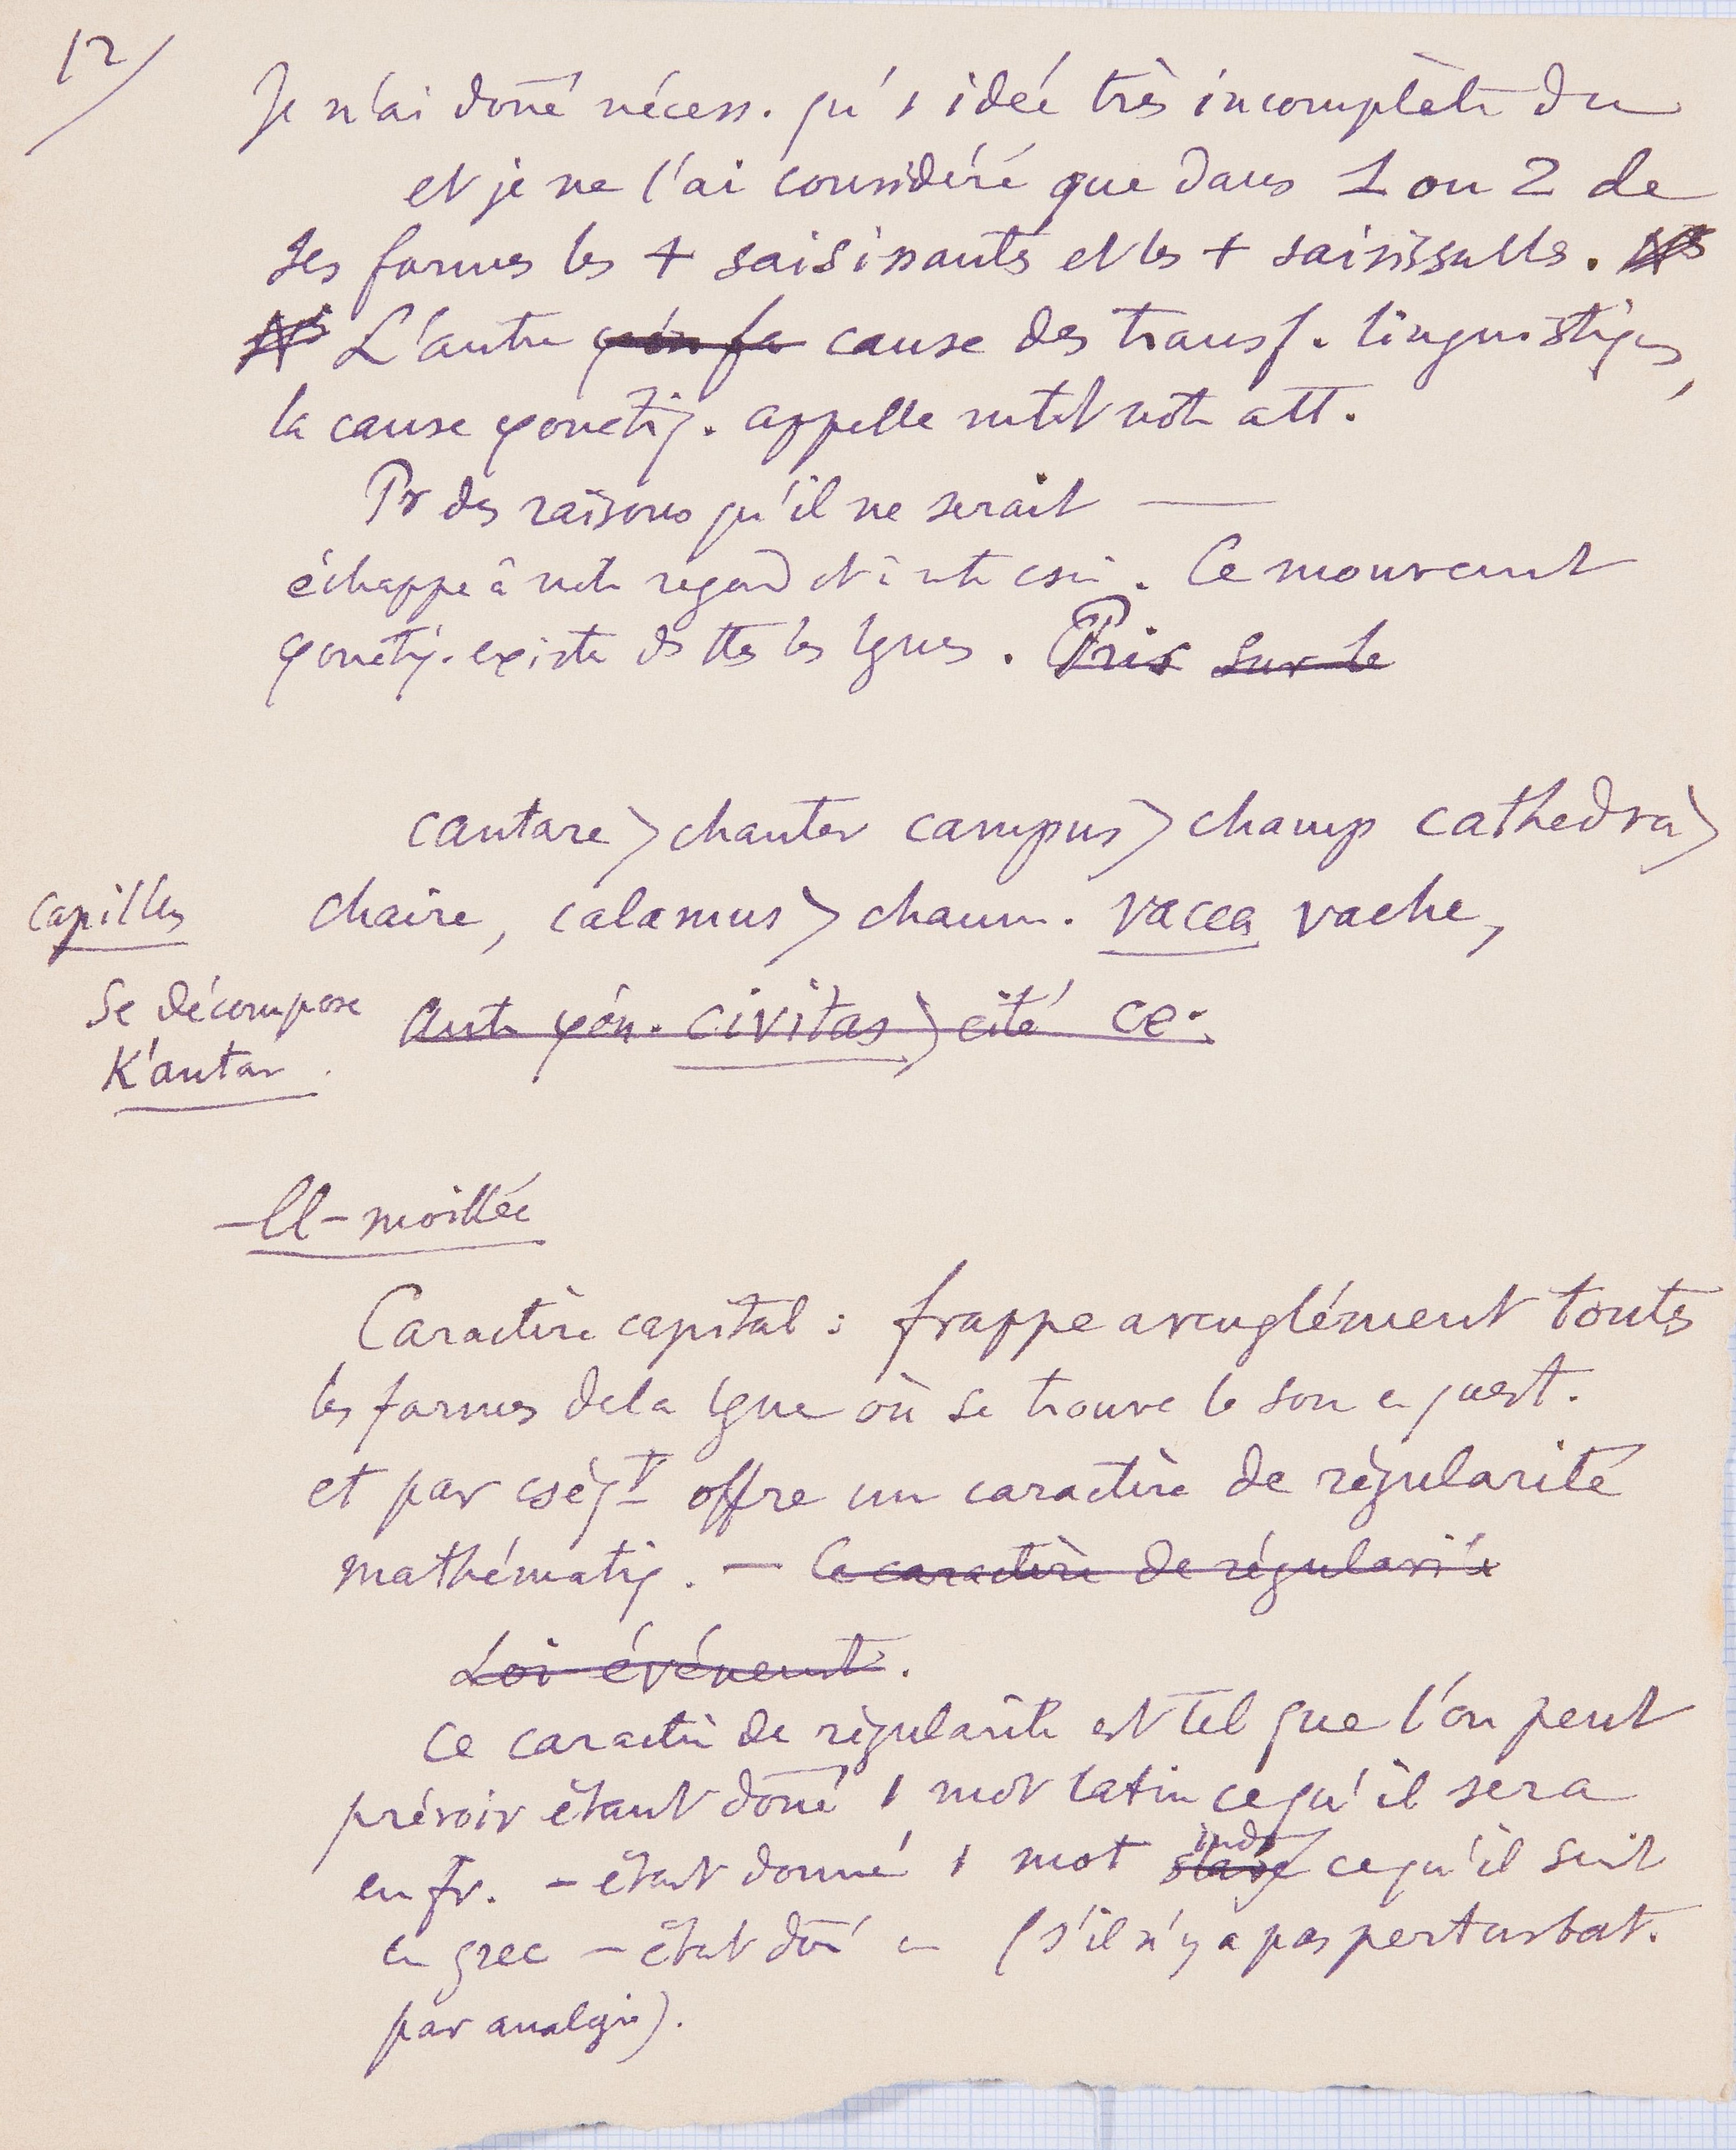 12/
Je n'ai doñé nécess. qu'1 idée très incomplète du
et je ne l'ai considéré que dans 1 ou 2 de
ses formes les + saisissantes et les + saisissables. Ns
Ns L'autre φón fa cause des transf. linguistiques,
la cause φonétiq. appelle mtnt notre att.
Pr des raisons qu'il ne serait —
échappe à notre regard et à notre csc. Ce mouvement
φonétiq. existe ds ttes les lgues. Pris sur le
cantare > chanter campus > champ cathedra >
capillus
chaire, calamus > chaum. vacca vache,
Se décompose
K'antar.
Autre φón. civitas > cité ce.
-ll- moillée
Caractère capital : frappe aveuglément toutes
les formes de la lgue où se trouve le son en quest.
et par cséqt offre un caractère de régularité
mathématiq. — Ce caractère de régularité
Loi événemt.
Ce caractère de régularité est tel que l'on peut
prévoir étant doñé 1 mot latin ce qu'il sera
en fr. – étant donné 1 mot slave indo ce qu'il serait
en grec – étant doñé en (s'il n'y a pas perturbat.
par analgie).